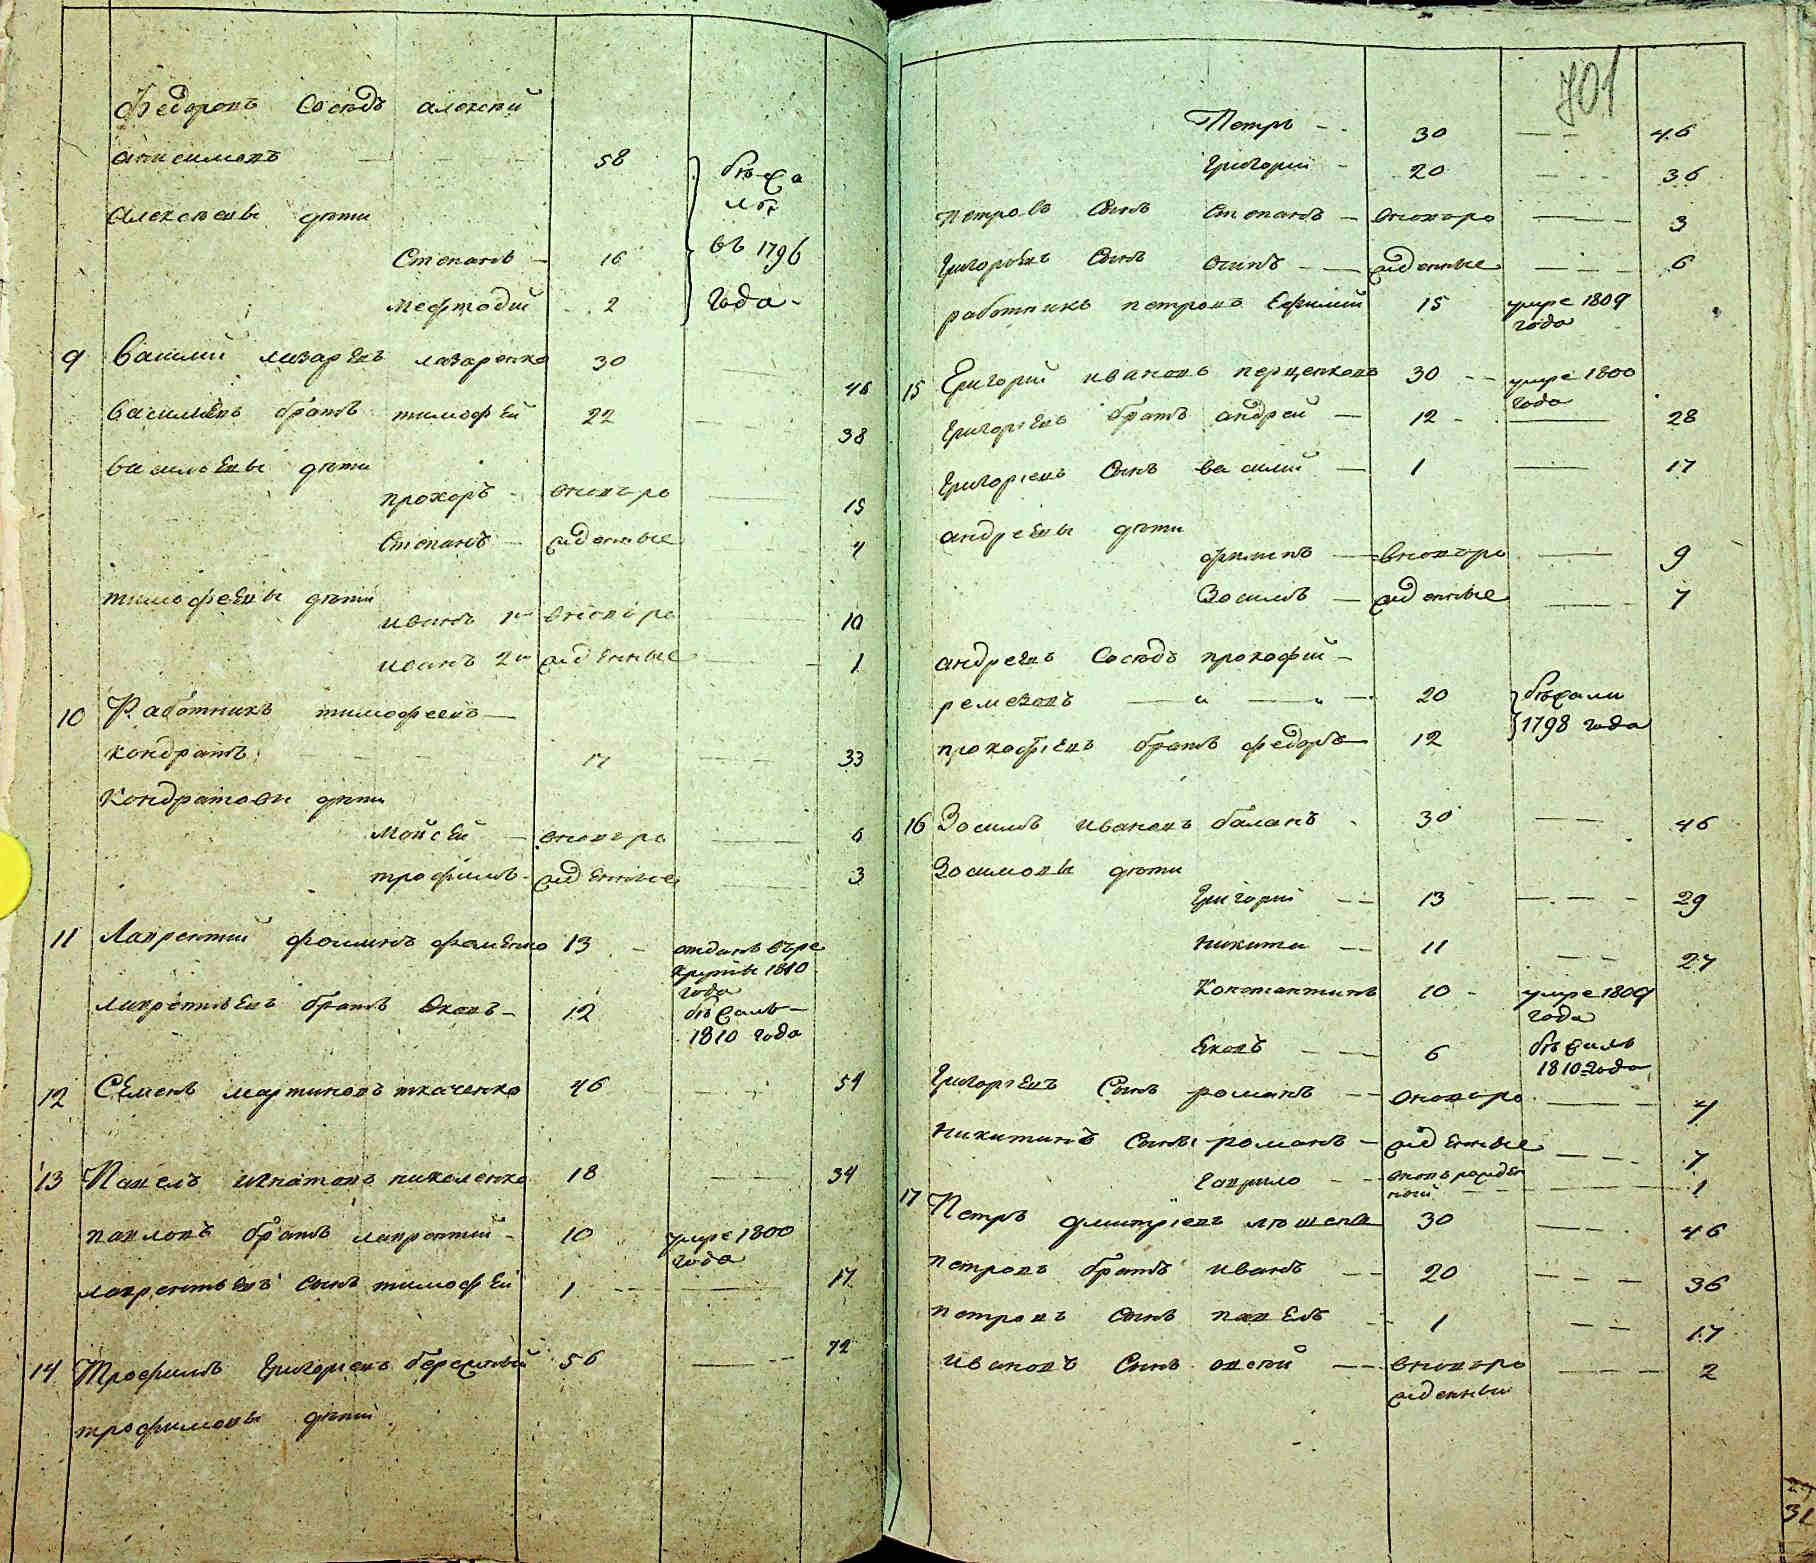 Федоровъ Соседъ алексей
анисимовъ — — — 58 бежа
ли
Алексеевы дети
Степанъ — 16 въ 1796
Мефтодий 2 года
9 Василий лазаревъ лазаренко 30 — 46
Васильевъ братъ тимофей 22 — 38
васильевы дети
прохоръ — вновъро — 15
Степанъ — жденные — 4
тимофеевы дети
иванъ 1й вновъро — 10
иванъ 2й жденные — 1
10 Работникъ тимофеевъ —
кондратъ — 17 — 33
Кондратовы дети
Мойсей — вновъро — 6
трофимъ — жденные — 3
11 Лаврентий фоминъ фоменко 13 — отданъ въре
круты 1810
года
лаврентьевъ братъ Яковъ — 12 бежалъ —
1810 года
12 Семенъ мартиновъ ткаченко 46 — 54
13 Павелъ игнатовъ николенко 18 — 34
павловъ братъ лаврентий — 10 умре 1800
года
лаврентьевъ сынъ тимофей 1 — 17
14 Трофимъ григориевъ бережный 56 — 72
трофимовы дети
701
Петръ — 30 — 46
григорий — 20 — 36
петровъ сынъ Степанъ — вновъро — 3
григорьевъ сынъ осипъ — жденные — 6
работникъ петровъ Ефимий 15 умре 1809
года
15 Григорий ивановъ перценковъ 30 — умре 1800
года
григориевъ братъ андрей — 12 — 28
григориевъ сынъ василий — 1 — 17
андреевы дети
филипъ — вновъро — 9
Зосимъ — жденные — 7
андреевъ Соседъ прокофий —
ремезовъ — " — " — 20 бежали
1798 года
прокофиевъ братъ федоръ 12
16 Зосимъ ивановъ баланъ 30 — 46
Зосимовы дети
григорий — 13 — 29
никита — 11 — 27
Константинъ 10 — умре 1809
года
Яковъ — 6 бежалъ
1810 года
григориевъ Сынъ романъ — вновъро — 4
никитинъ Сынъ романъ — жденные — 7
гаврило — вновърожден
ный — 1
17 Петръ дмитриевъ лешенъ 30 — 46
петровъ братъ иванъ — 20 — 36
петровъ сынъ павелъ — 1 — 17
ивановъ Сынъ — вновъро — 2
жденный
31